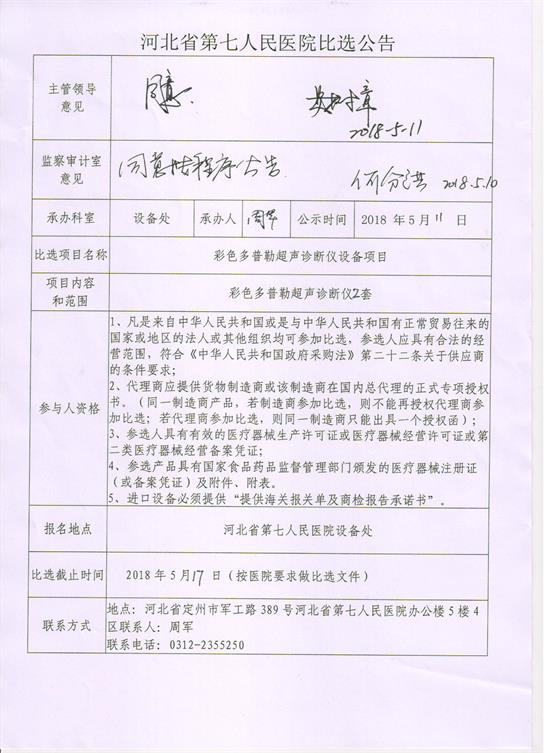 河北省第七人民医院比选公告
主管领导
意见
同意.
2018-5-11
监察审计室
意见
同意此程序公告
2018.5.10
承办科室 设备处 承办人 周军 公示时间 2018 年 5 月 11 日
比选项目名称 彩色多普勒超声诊断仪设备项目
项目内容
和范围
彩色多普勒超声诊断仪2套
参与人资格
1、凡是来自中华人民共和国或是与中华人民共和国有正常贸易往来的
国家或地区的法人或其他组织均可参加比选，参选人应具有合法的经
营范围，符合《中华人民共和国政府采购法》第二十二条关于供应商
的条件要求；
2、代理商应提供货物制造商或该制造商在国内总代理的正式专项授权
书。（同一制造商产品，若制造商参加比选，则不能再授权代理商参
加比选；若代理商参加比选，则同一制造商只能出具一个授权函）；
3、参选人具有有效的医疗器械生产许可证或医疗器械经营许可证或第
二类医疗器械经营备案凭证；
4、参选产品具有国家食品药品监督管理部门颁发的医疗器械注册证
（或备案凭证）及附件、附表。
5、进口设备必须提供“提供海关报关单及商检报告承诺书”。
报名地点 河北省第七人民医院设备处
比选截止时间 2018 年 5 月 17 日（按医院要求做比选文件）
联系方式
地点：河北省定州市军工路 389 号河北省第七人民医院办公楼 5 楼 4
区联系人：周军
联系电话：0312-2355250